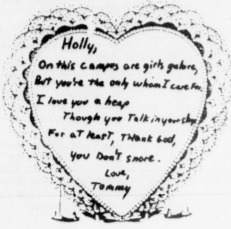 Holly,
On this campus are girls galore,
But you're the only whom I care for.
I love you a heap
Though you Talk in your sleep
For at least, Thank God,
you Don't snore.
Love,
Tommy